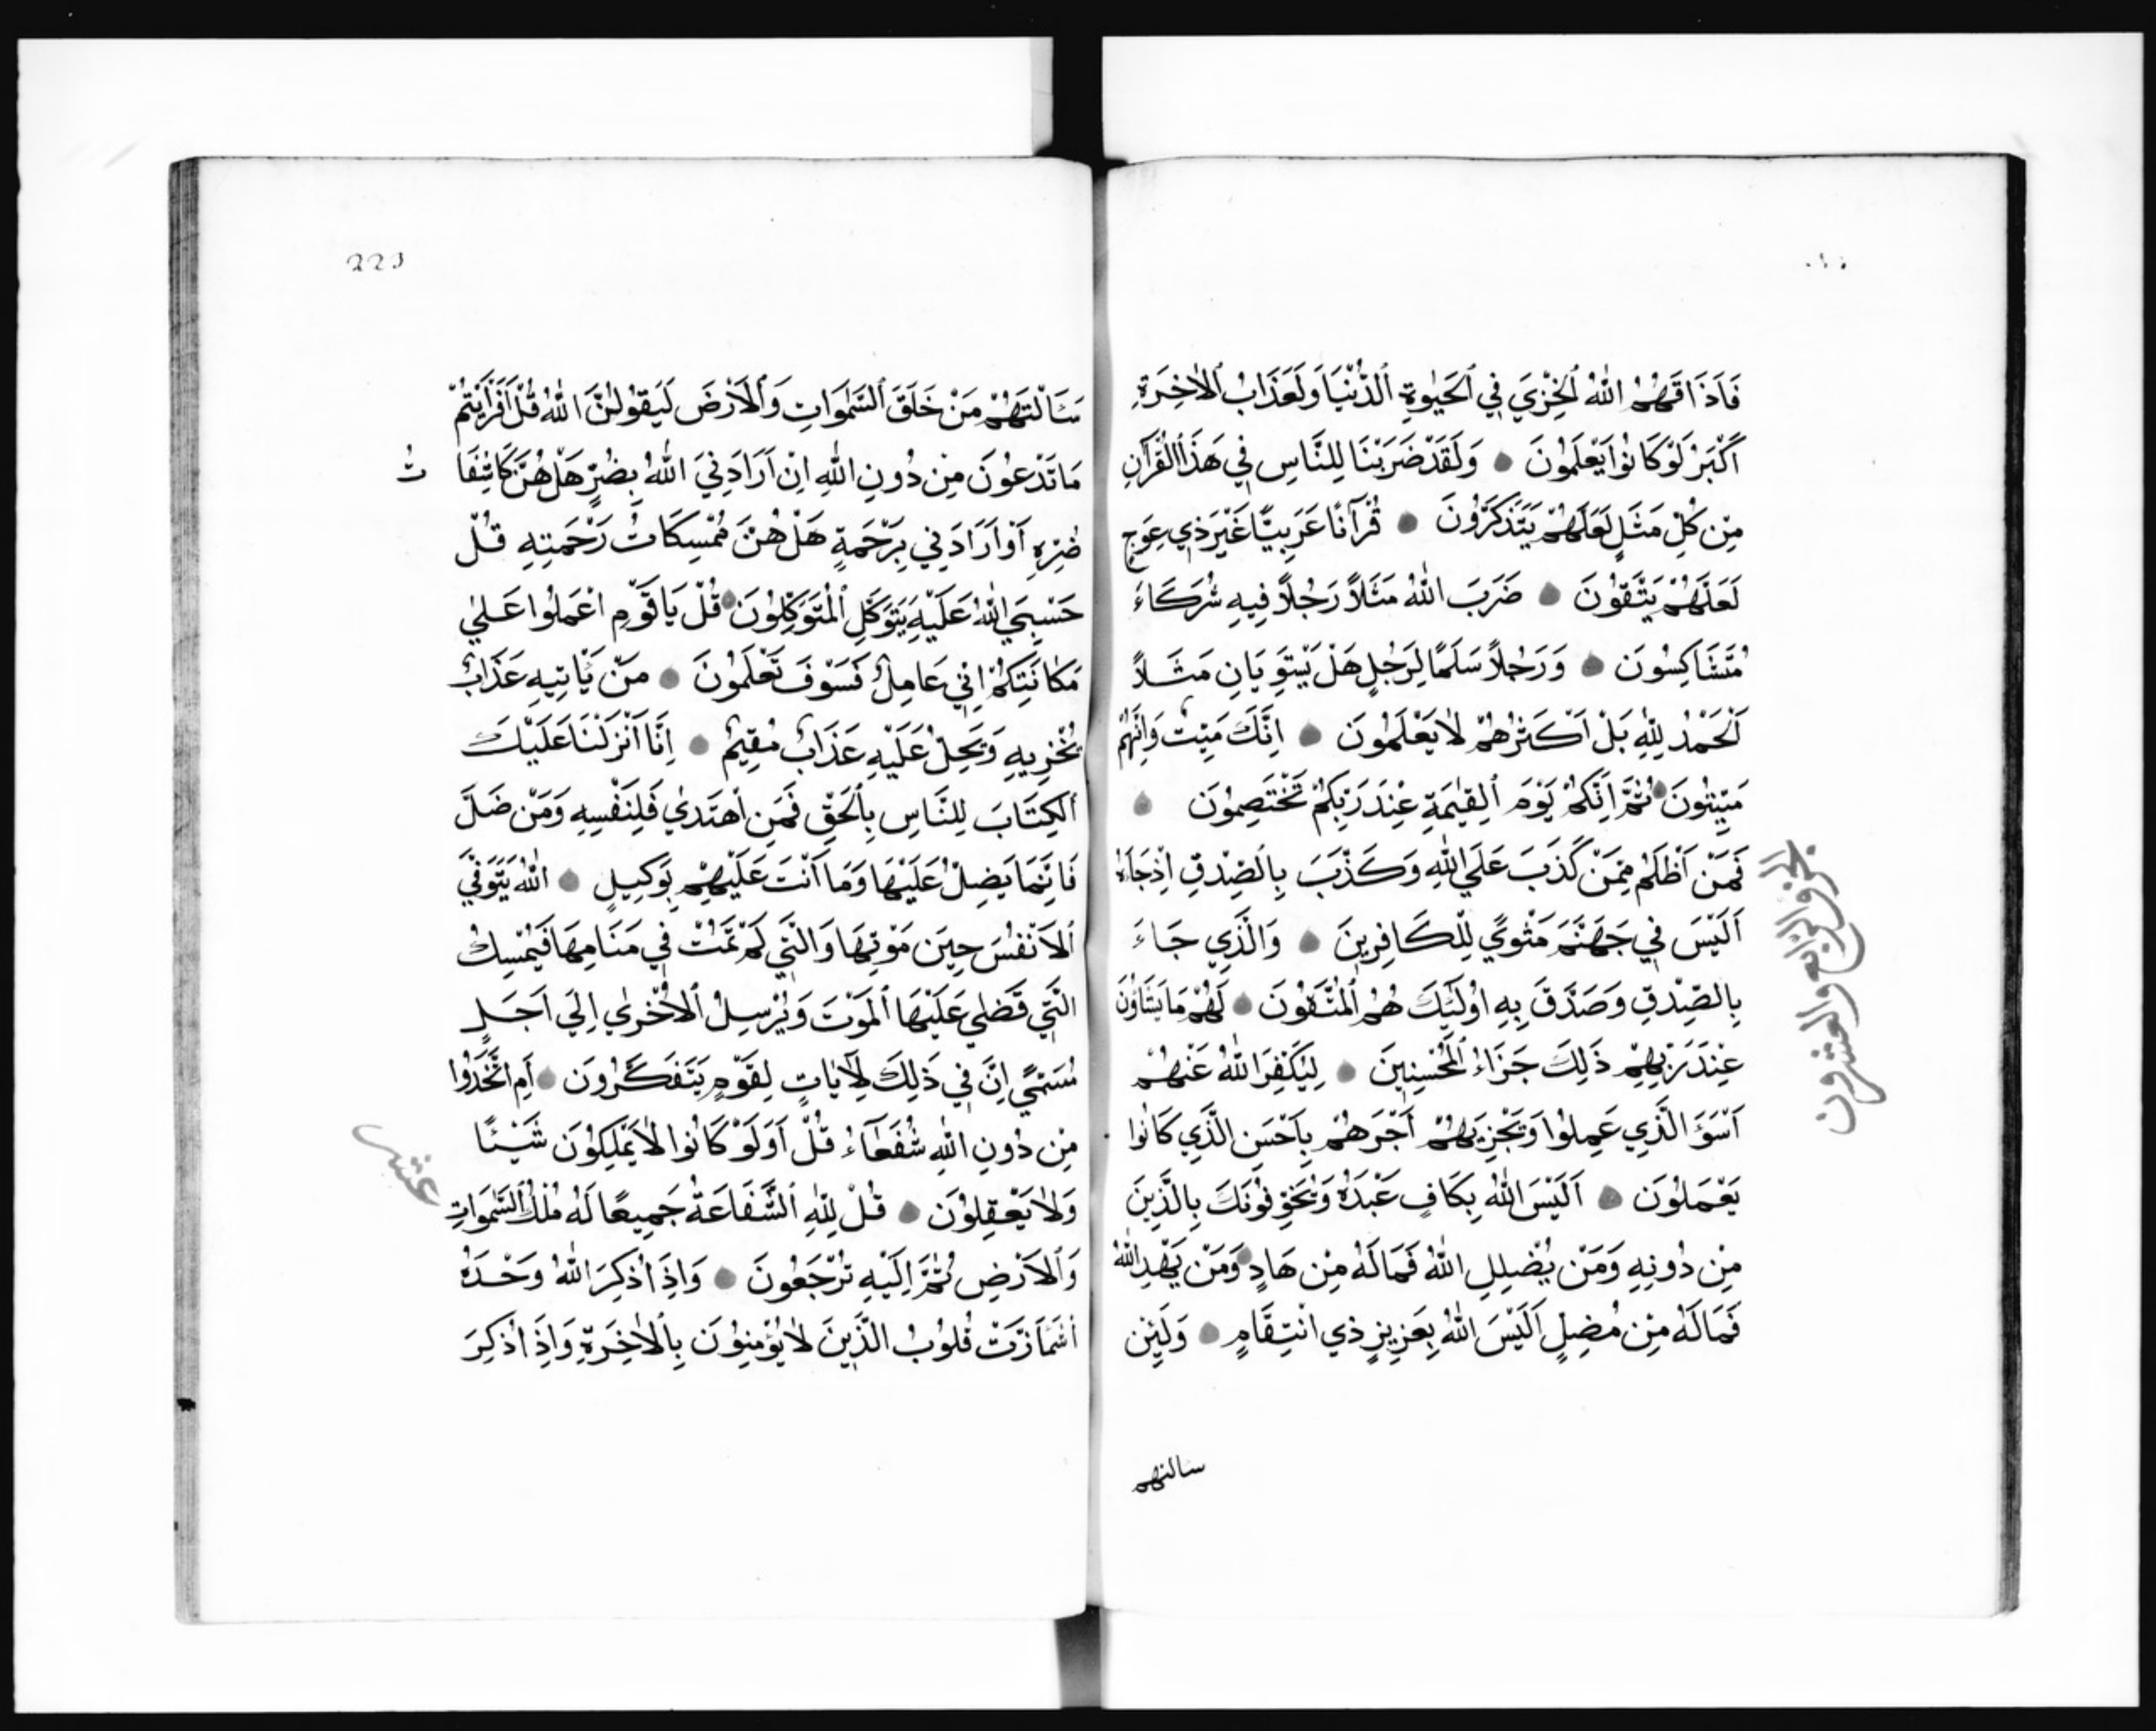 فَاَذَاقَهُمُ اللّٰهُ ٱلْخِزْيَ فِي ٱلْحَيٰوةِ ٱلدُّنْيَا وَلَعَذَابُ ٱلْاٰخِرَةِ
اَكْبَرُ لَوْ كَانُوا يَعْلَمُونَ ● وَلَقَدْ ضَرَبْنَا لِلنَّاسِ فِي هَذَا ٱلْقُرْآنِ
مِنْ كُلِّ مَثَلٍ لَعَلَّهُمْ يَتَذَكَّرُونَ ● قُرْآنًا عَرَبِيًّا غَيْرَ ذِي عِوَجٍ
لَعَلَّهُمْ يَتَّقُونَ ● ضَرَبَ اللّٰهُ مَثَلاً رَجُلاً فِيهِ شُرَكَاءُ
مُتَشَاكِسُونَ ● وَرَجُلاً سَلَمًا لِرَجُلٍ هَلْ يَسْتَوِيَانِ مَثَلاً
اَلْحَمْدُ لِلّٰهِ بَلْ اَكْثَرُهُمْ لَا يَعْلَمُونَ ● اِنَّكَ مَيِّتٌ وَاِنَّهُمْ
مَيِّتُونَ ● ثُمَّ اِنَّكُمْ يَوْمَ ٱلْقِيٰمَةِ عِنْدَ رَبِّكُمْ تَخْتَصِمُونَ ●
فَمَنْ اَظْلَمُ مِمَّنْ كَذَبَ عَلَي اللّٰهِ وَكَذَّبَ بِالصِّدْقِ اِذْ جَاءَهُ
اَلَيْسَ فِي جَهَنَّمَ مَثْوًي لِلْكَافِرِينَ ● وَالَّذِي جَاءَ
بِالصِّدْقِ وَصَدَّقَ بِهِ اُولَئِكَ هُمُ ٱلْمُتَّقُونَ ● لَهُمْ مَا يَشَاؤُنَ
عِنْدَ رَبِّهِمْ ذَلِكَ جَزَاءُ ٱلْمُحْسِنِينَ ● لِيُكَفِّرَ اللّٰهُ عَنْهُمْ
اَسْوَءَ الَّذِي عَمِلُوا وَيَجْزِيَهُمْ اَجْرَهُمْ بِاَحْسَنِ الَّذِي كَانُوا
يَعْمَلُونَ ● اَلَيْسَ اللّٰهُ بِكَافٍ عَبْدَهُ وَيُخَوِّفُونَكَ بِالَّذِينَ
مِنْ دُونِهِ وَمَنْ يُضْلِلِ اللّٰهُ فَمَا لَهُ مِنْ هَادٍ ● وَمَنْ يَهْدِ اللّٰهُ
فَمَا لَهُ مِنْ مُضِلٍّ اَلَيْسَ اللّٰهُ بِعَزِيزٍ ذِي انْتِقَامٍ ● وَلَئِنْ
سالتهم
الجزو الرابع والعشرون
223
سَئَالْتَهُمْ مَنْ خَلَقَ ٱلسَّمٰوَاتِ وَٱلْاَرْضَ لَيَقُولُنَّ اللّٰهُ قُلْ اَفَرَاَيْتُمْ
مَا تَدْعُونَ مِنْ دُونِ اللّٰهِ اِنْ اَرَادَنِيَ اللّٰهُ بِضُرٍّ هَلْ هُنَّ كَاشِفَا تُ
ضُرِّهِ اَوْ اَرَادَنِي بِرَحْمَةٍ هَلْ هُنَّ مُمْسِكَاتُ رَحْمَتِهِ قُلْ
حَسْبِيَ اللّٰهُ عَلَيْهِ يَتَوَكَّلُ ٱلْمُتَوَكِّلُونَ ● قُلْ يَا قَوْمِ اعْمَلُوا عَلٰي
مَكَانَتِكُمْ اِنِّي عَامِلٌ فَسَوْفَ تَعْلَمُونَ ● مَنْ يَاْتِيهِ عَذَابٌ
يُخْزِيهِ وَيَحِلُّ عَلَيْهِ عَذَابٌ مُقِيمٌ ● اِنَّا اَنْزَلْنَا عَلَيْكَ
ٱلْكِتَابَ لِلنَّاسِ بِٱلْحَقِّ فَمَنِ اهْتَدٰي فَلِنَفْسِهِ وَمَنْ ضَلَّ
فَاِنَّمَا يَضِلُّ عَلَيْهَا وَمَا اَنْتَ عَلَيْهِمْ بِوَكِيلٍ ● اللّٰهُ يَتَوَفَّي
ٱلْاَنْفُسَ حِينَ مَوْتِهَا وَالَّتِي لَمْ تَمُتْ فِي مَنَامِهَا فَيُمْسِكُ
الَّتِي قَضٰي عَلَيْهَا ٱلْمَوْتَ وَيُرْسِلُ ٱلْاُخْرٰي اِلَي اَجَلٍ
مُسَمًّي اِنَّ فِي ذَلِكَ لَآيَاتٍ لِقَوْمٍ يَتَفَكَّرُونَ ● اَمِ اتَّخَذُوا
مِنْ دُونِ اللّٰهِ شُفَعَآءُ قُلْ اَوَلَوْ كَانُوا لَا يَمْلِكُونَ شَيْئًا
وَلَا يَعْقِلُونَ ● قُلْ لِلّٰهِ ٱلشَّفَاعَةُ جَمِيعًا لَهُ مُلْكُ ٱلسَّمٰوَاتِ
وَٱلْاَرْضِ ثُمَّ اِلَيْهِ تُرْجَعُونَ ● وَاِذَا ذُكِرَ اللّٰهُ وَحْدَهُ
اشْمَاَزَّتْ قُلُوبُ الَّذِينَ لَا يُؤْمِنُونَ بِٱلْاٰخِرَةِ وَاِذَا ذُكِرَ